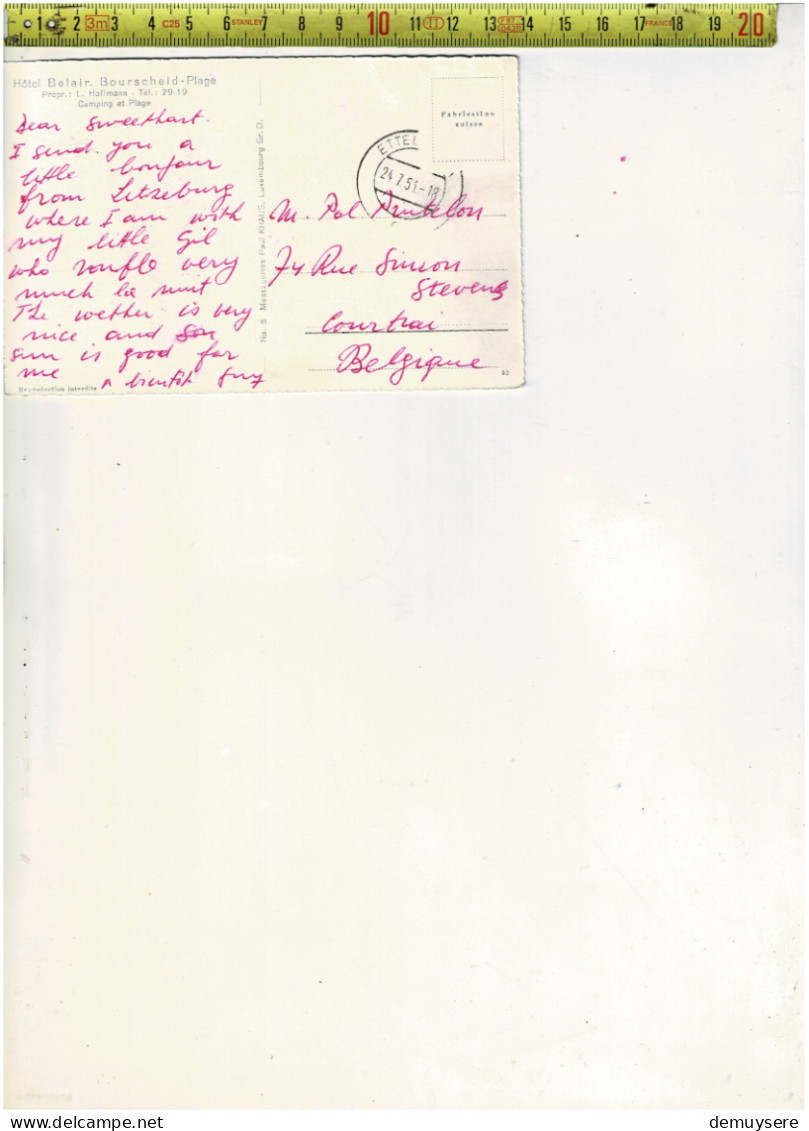 1 2 3m 3 4 C25 5 6 STANLEY 7 8 9 10 11 II 12 13 14 15 16 17 FRANCE 18 19 20
Hôtel Belair. Bourscheid-Plage
Propr.: L. Halfmann - Tél.: 29.19
Camping et Plage
Dear sweethart.
I send you a
little bonjour
from Litzeburg
where I am with
my little Gil
who ronfle very
much la nuit
The wether is very
nice and son
sun is good for
me
A bientôt Guy
Reproduction interdite
No. 5 Messageries Paul KRAUS, Luxembourg Gr. D.
Fabrication
suisse
ETTEL
24.7.51-18
M. Pol
74 Rue Simon
Stevens
Courtrai
Belgique
demuysere